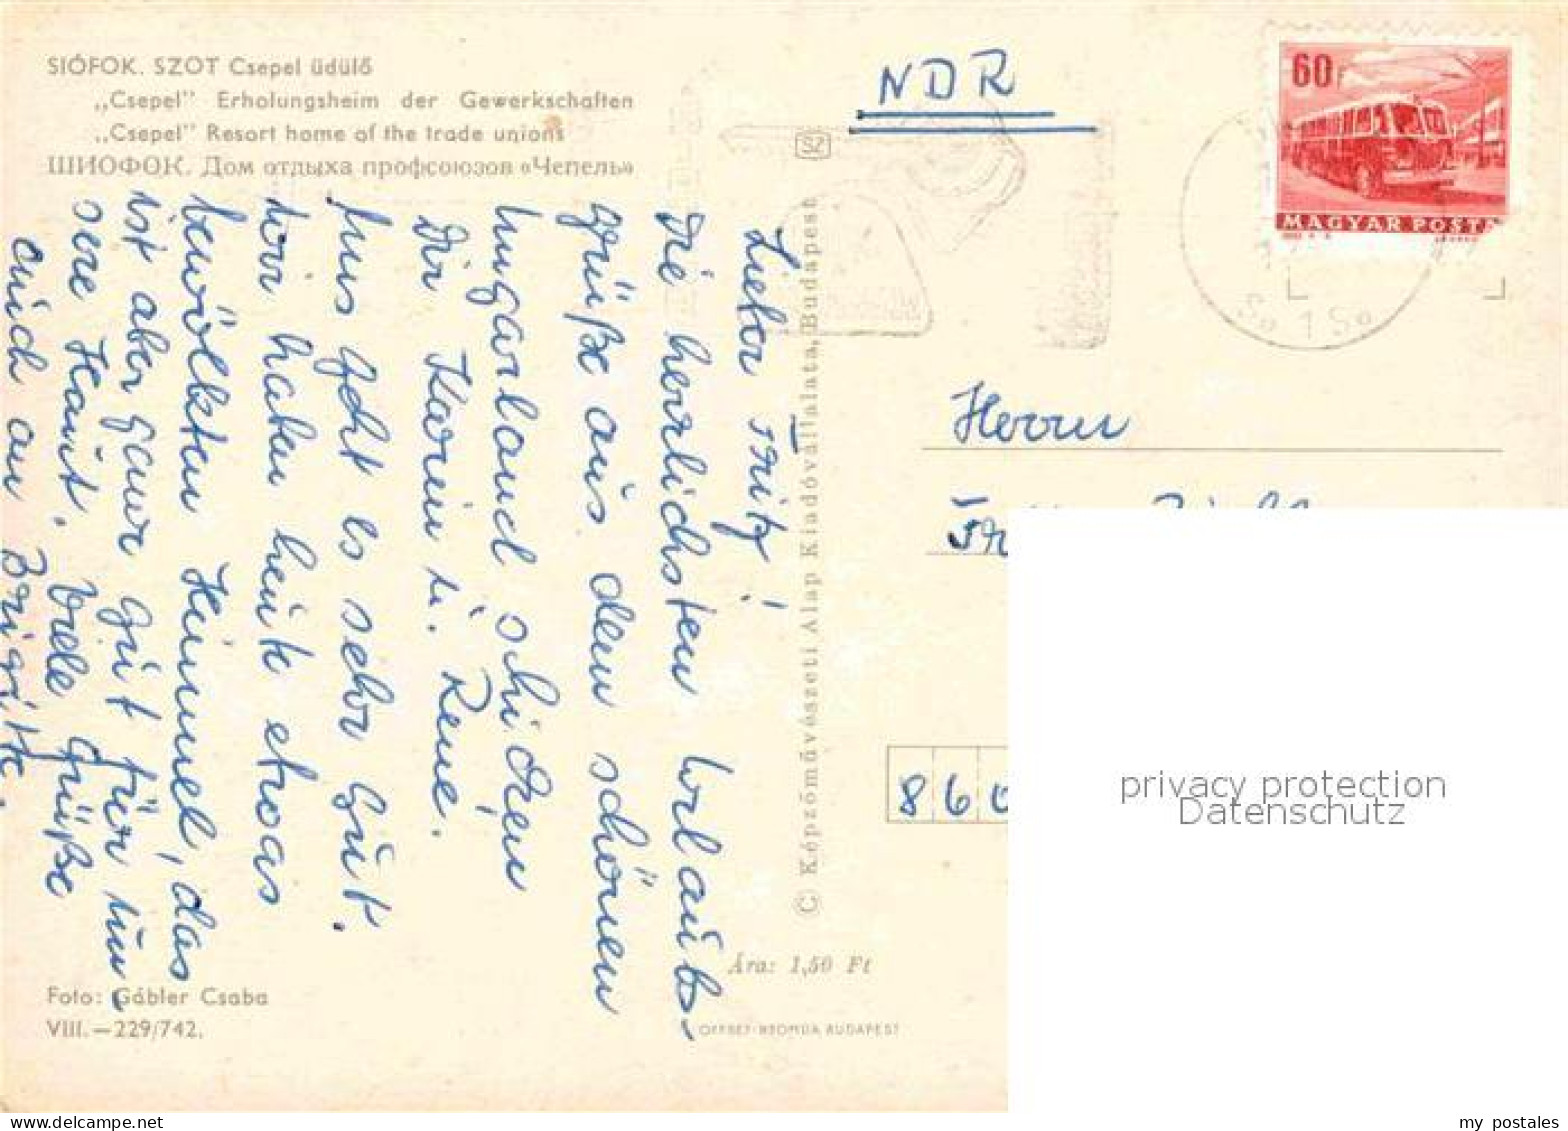 SIÓFOK. SZOT Csepel üdülő
„Csepel" Erholungsheim der Gewerkschaften
„Csepel" Resort home of the trade unions
ШИОФОК. Дом отдыха профсоюзов «Чепель»
Lieber Fritz!
Die herrlichsten Urlaubs-
grüße aus dem schönen
Ungarland schicken
Dir Karin u. Rene.
Uns geht es sehr gut.
Wir haben heute etwas
bewölkten Himmel, das
ist aber ganz gut für un
sere Haut. Viele Grüße
auch an Brigitte.
Foto: Gábler Csaba
VIII.—229/742.
© Képzőművészeti Alap Kiadóvállalata, Budapest
SZ
Ára: 1,50 Ft
OFFSET-NYOMDA BUDAPEST
NDR
60f
MAGYAR POSTA
Herrn
860
privacy protection
Datenschutz
my postales